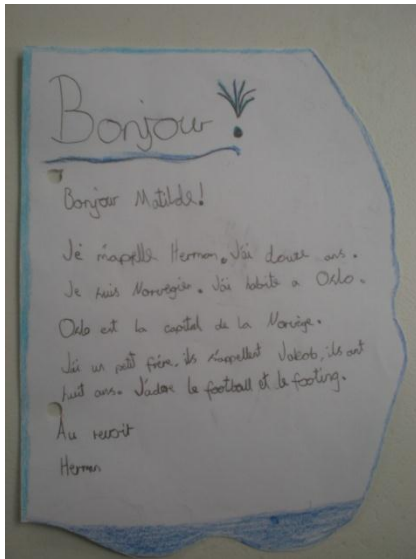 Bonjour!
Bonjour Matilde!
Je m'appelle Herman. J'ai douze ans.
Je suis Norvegien. J'ai habite a Oslo.
Oslo est la capital de la Norvège.
J'ai un petit frère, ils s'appellent Jakob, ils ont
huit ans. J'adore le football et le footing.
Au revoir
Herman